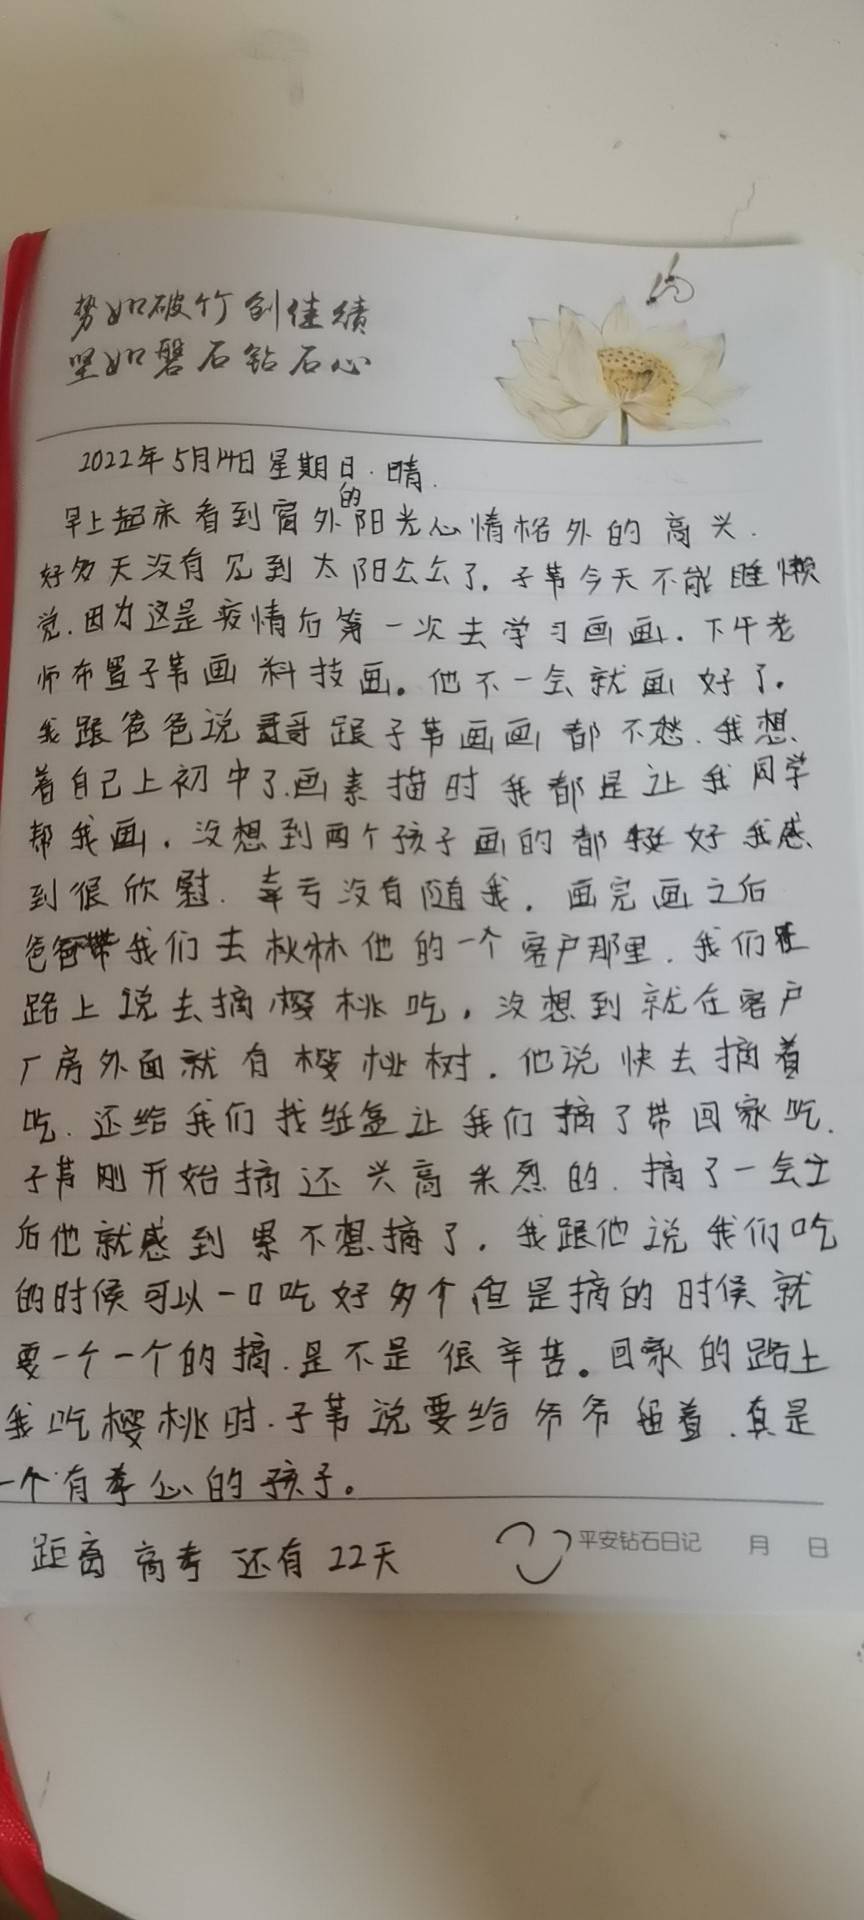 势如破竹创佳绩
坚如磐石钻石心
2022年5月14日星期日.晴.
早上起床看到窗外的阳光心情格外的高兴.
好多天没有见到太阳公公了.子苇今天不能睡懒
觉.因为这是疫情后第一次去学习画画.下午老
师布置子苇画科技画。他不一会就画好了.
我跟爸爸说哥哥跟子苇画画都不愁.我想
着自己上初中了.画素描时我都是让我同学
帮我画.没想到两个孩子画的都挺好我感
到很欣慰.幸亏没有随我.画完画之后
爸爸带我们去秋林他的一个客户那里.我们在
路上说去摘樱桃吃.没想到就在客户
厂房外面就有樱桃树.他说快去摘着
吃.还给我们找纸盒让我们摘了带回家吃.
子苇刚开始摘还兴高采烈的.摘了一会
后他就感到累不想摘了.我跟他说我们吃
的时候可以一口吃好多个但是摘的时候就
要一个一个的摘.是不是很辛苦。回家的路上
我吃樱桃时.子苇说要给爷爷留着.真是
一个有孝心的孩子。
距离高考还有22天
平安钻石日记 月 日